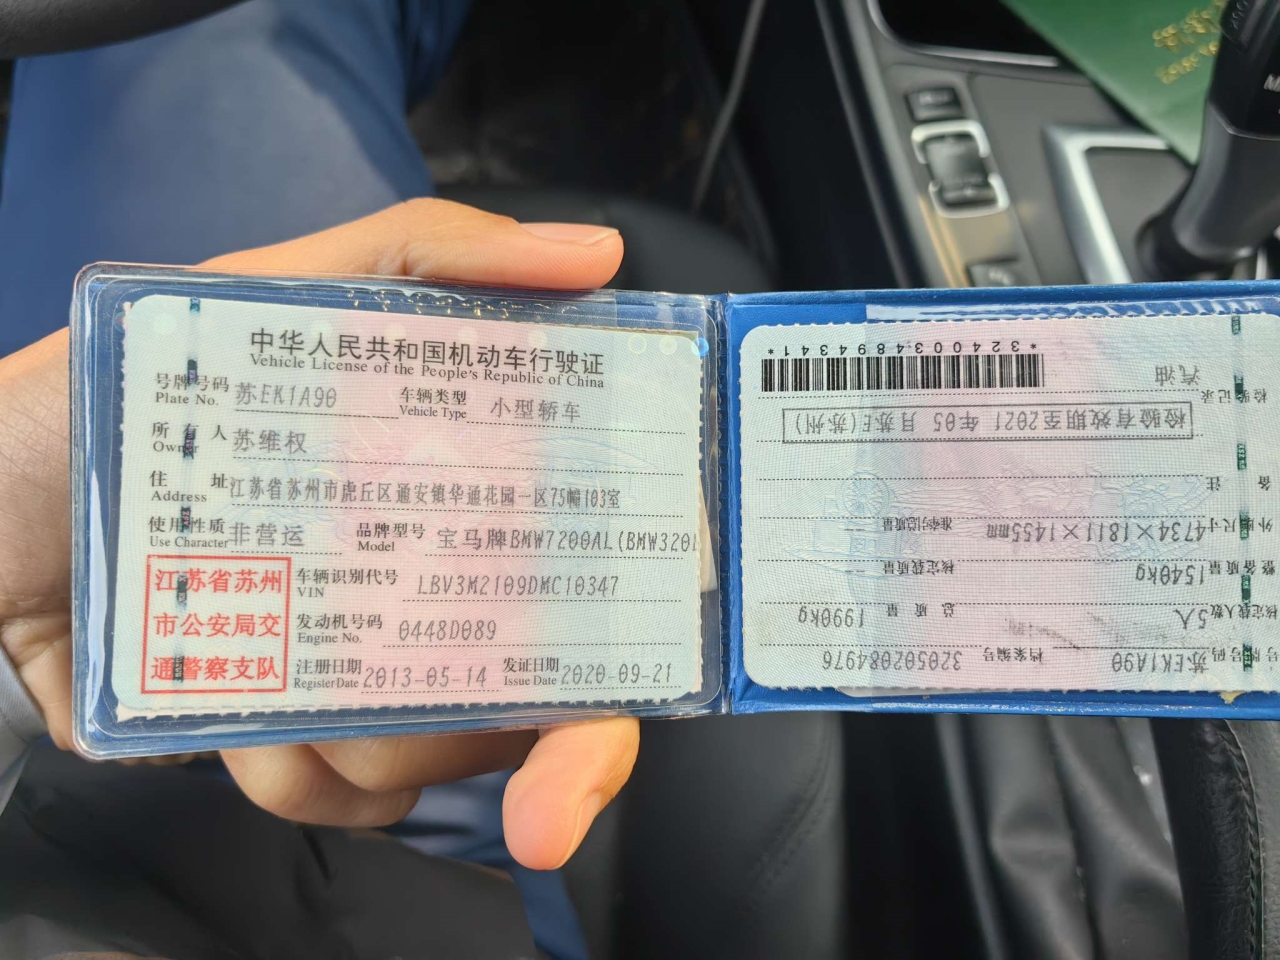 中华人民共和国机动车行驶证
Vehicle License of the People's Republic of China
号牌号码 苏EK1A90 车辆类型 小型轿车
Plate No. Vehicle Type
所有人 苏维权
Owner
住址 江苏省苏州市虎丘区通安镇华通花园一区75幢103室
Address
使用性质 非营运 品牌型号 宝马牌BMW7200AL(BMW320i
Use Character Model
江苏省苏州
市公安局交
通警察支队
车辆识别代号 LBV3M2109DMC10347
VIN
发动机号码 0448D089
Engine No.
注册日期 2013-05-14 发证日期 2020-09-21
Register Date Issue Date
号牌号码 苏EK1A90 档案编号 320502084976
核定载人数 5人 总质量 1990kg
整备质量 1540kg 核定载质量 --
外廓尺寸 4734×1811×1455mm 准牵引总质量 --
备注
检验有效期至2021年05月苏E(苏州)
检验记录
汽油
*3240034894341*